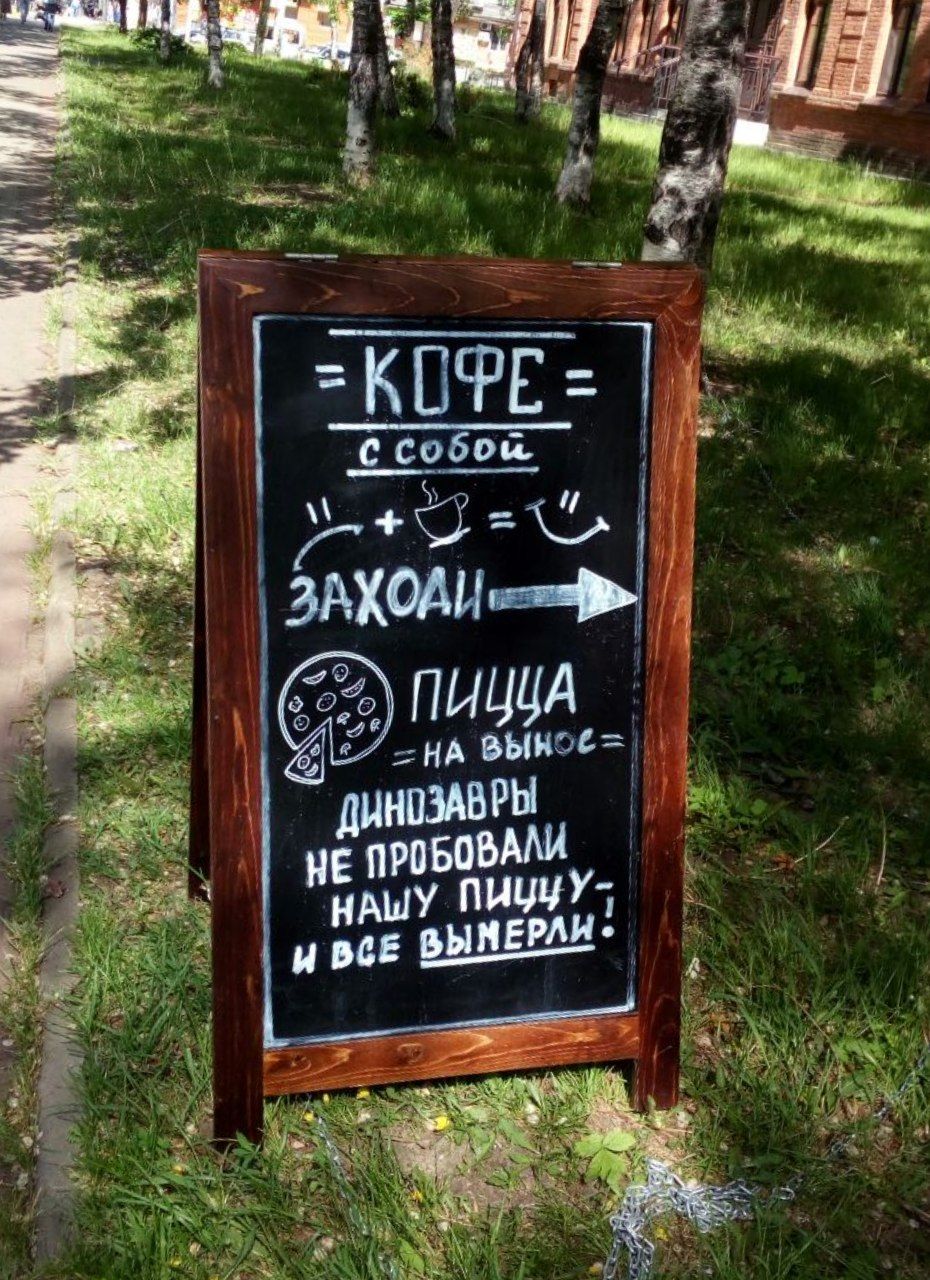 = КОФЕ =
с собой
+ =
ЗАХОДИ
ПИЦЦА
= НА ВЫНОС =
ДИНОЗАВРЫ
НЕ ПРОБОВАЛИ
НАШУ ПИЦЦУ -
И ВСЕ ВЫМЕРЛИ!